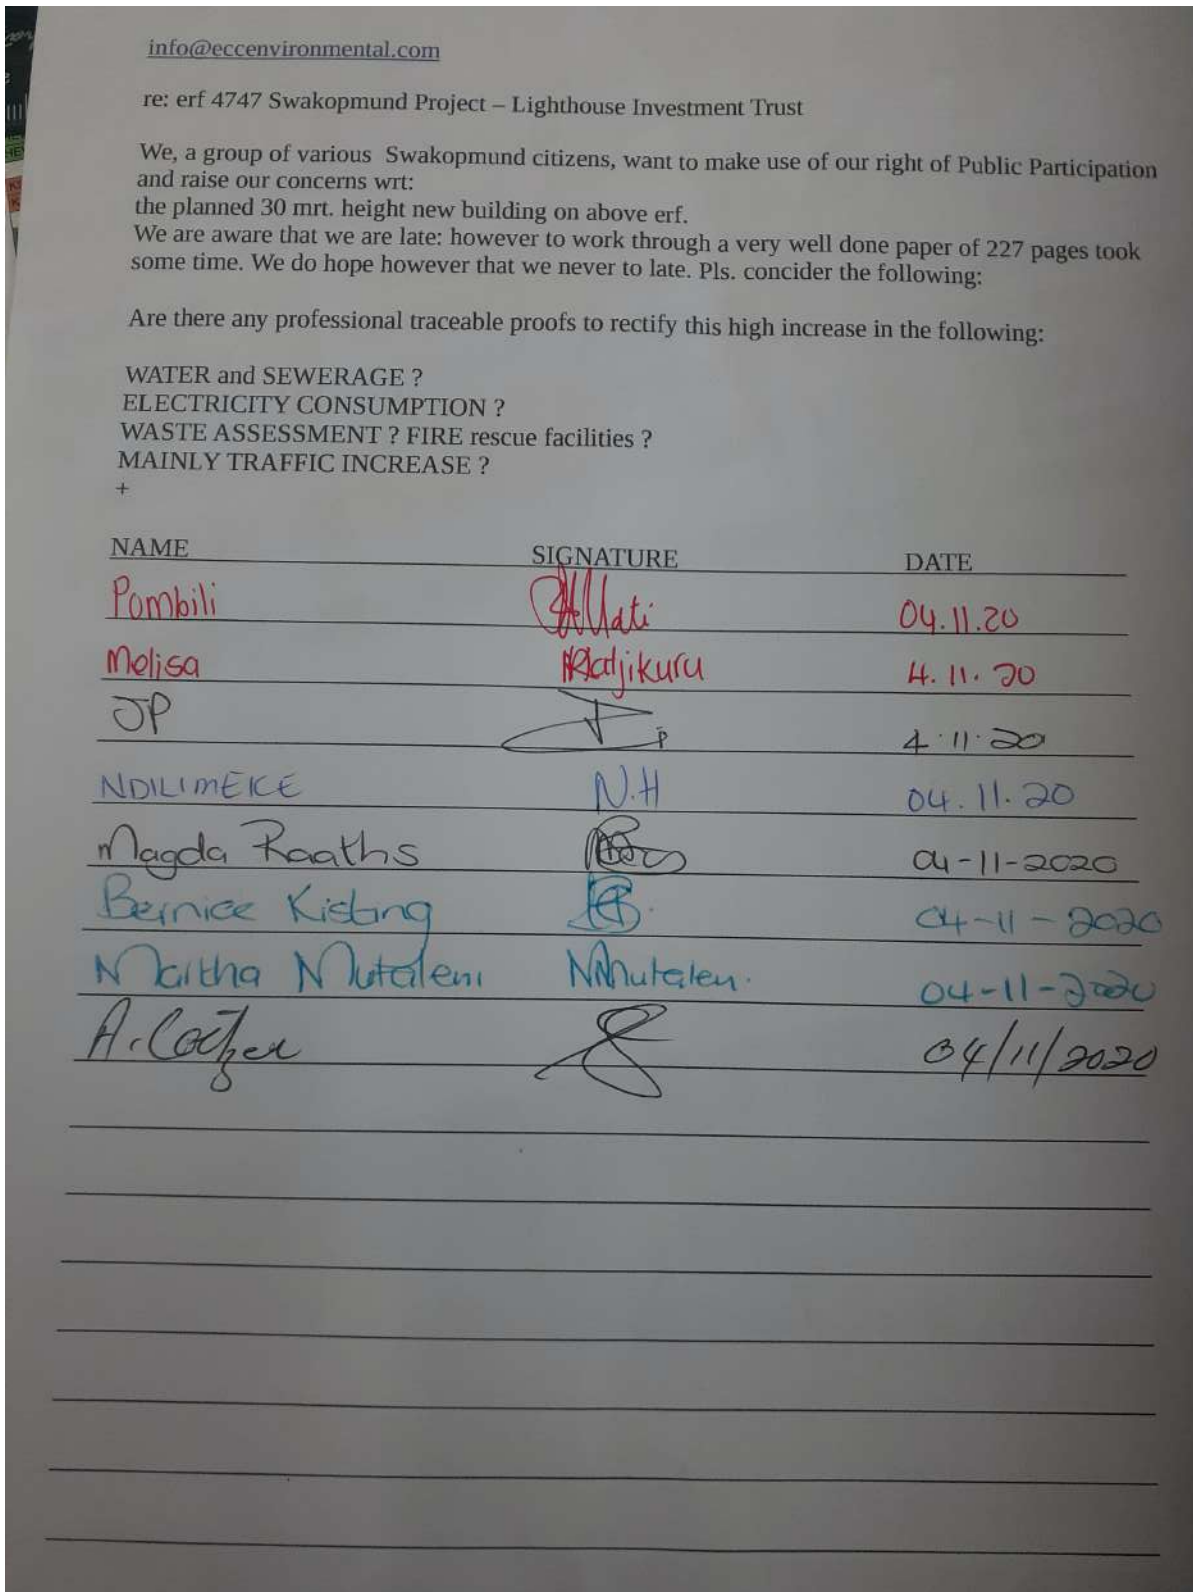 info@eccenvironmental.com
re: erf 4747 Swakopmund Project – Lighthouse Investment Trust
We, a group of various Swakopmund citizens, want to make use of our right of Public Participation
and raise our concerns wrt:
the planned 30 mrt. height new building on above erf.
We are aware that we are late: however to work through a very well done paper of 227 pages took
some time. We do hope however that we never to late. Pls. concider the following:
Are there any professional traceable proofs to rectify this high increase in the following:
WATER and SEWERAGE ?
ELECTRICITY CONSUMPTION ?
WASTE ASSESSMENT ? FIRE rescue facilities ?
MAINLY TRAFFIC INCREASE ?
+
NAME SIGNATURE DATE
Pombili 04.11.20
Melisa 4.11.20
JP 4.11.20
NDILIMEKE N.H 04.11.20
Magda Raaths 04-11-2020
Bernice Kisting 04-11-2020
Martha Mutaleni 04-11-2020
A. Coetzer 04/11/2020